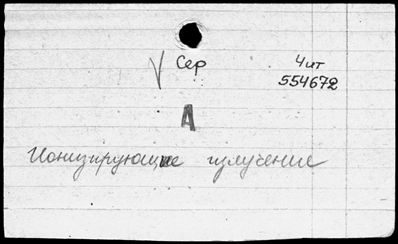 Сер
4 шт
554672
А
Ионизирующие излучение